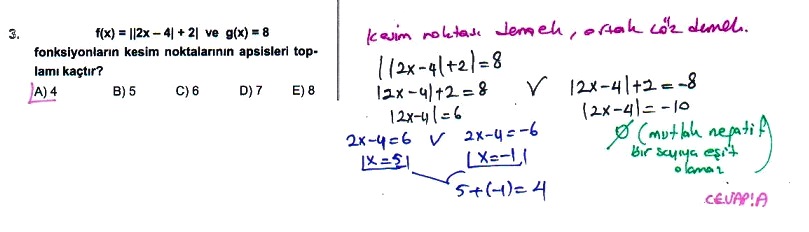 3. f(x) = ||2x – 4| + 2| ve g(x) = 8
fonksiyonların kesim noktalarının apsisleri top-
lamı kaçtır?
A) 4 B) 5 C) 6 D) 7 E) 8
Kesim noktası demek, ortak çöz demek.
||2x-4|+2|=8
|2x-4|+2=8 V |2x-4|+2=-8
|2x-4|=6 |2x-4|=-10
2x-4=6 V 2x-4=-6
|x=5| |x=-1|
∅ (mutlak negatif
bir sayıya eşit
olamaz)
5+(-1)=4
CEVAP!A